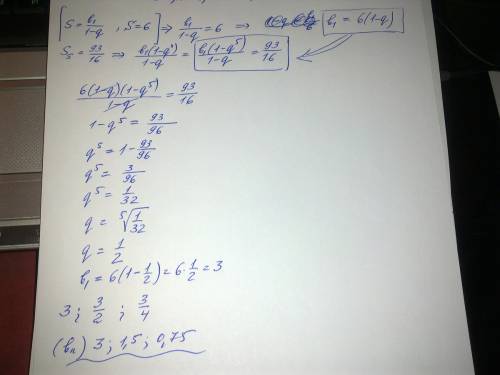 [S = b₁/(1-q) , S=6] ⇒ b₁/(1-q) = 6 ⇒ b₁ = 6(1-q)
S₅ = 93/16 ⇒ b₁(1-q⁵)/(1-q) = b₁(1-q⁵)/(1-q) = 93/16
6(1-q)(1-q⁵)/(1-q) = 93/16
1-q⁵ = 93/96
q⁵ = 1-93/96
q⁵ = 3/96
q⁵ = 1/32
q = ⁵√(1/32)
q = 1/2
b₁ = 6(1-1/2) = 6·1/2 = 3
3 ; 3/2 ; 3/4
(bₙ) 3 ; 1,5 ; 0,75